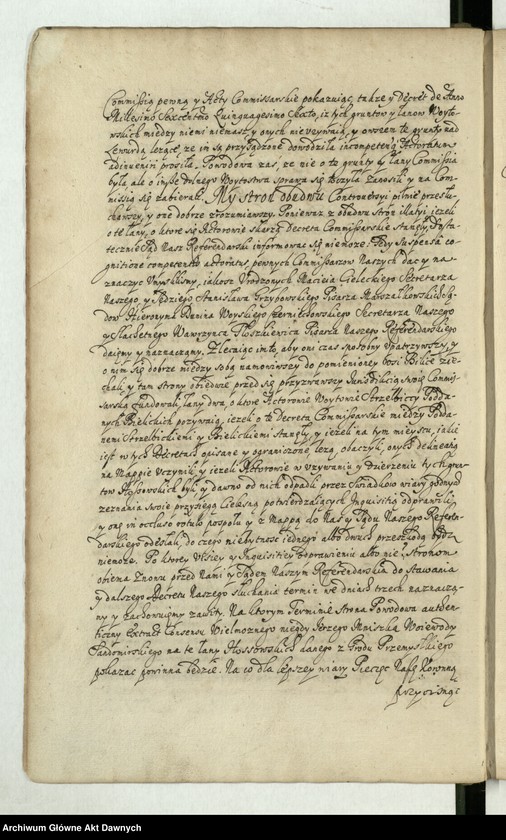 Commissią pewną y Akty Commissarskie pokazuiąc, także y Decret de Anno
Millesimo Sexcentmo Quinquagesimo Sexto, iż tych gruntow y łanow Woyto-
wskich między niemi niemasz, y onych nie używaią, y owszem te grunty nad
Lewurdą leżące, że im są przysądzone dowodziła incompetent Actoratum
adinueniri prosiła. Powodowa zas, że nie o te grunty y łany Commissia
była ale o insze Woytostwa sprawa się toczyła zanosiła y na Com-
missią się zabierała. My stron obudwu Controwersyi pilnie przesłu-
chawszy, y one dobrze zrozumiawszy. Ponieważ z obudwu stron illatyi ieżeli
o te łany, o ktore się Actorowie skarżą Decreta Commissarskie stanęły, dosta-
tecznie Sąd Nasz Referendarski informować się niemoże. Tedy suspensa co-
gnitione competentis actoratus, pewnych Commissarzow Naszych dać y na-
znaczyć umyslilismy, iakosz Urodzonych Macieia Cieleckiego Sekretarza
Naszego, y Sędziego Stanisława Grzybowskiego Pisarza Marszałkowskich Są-
dow Hieronyma Woyskiego Czerniechowskiego Secretarza Naszego
y Slachetnego Wawrzynca Pisarza Naszego Referendarskiego
daiemy y naznaczamy. Zlecaiąc im to, aby oni czas sposobny upatrzywszy, y
o nim się dobrze między sobą namowiwszy do pomienioney wsi Bilicz zie-
chali, y tam strony obiedwie przed się przyzwawszy Jurisdikcią swoię Commis-
sarską fundowali, łany dwa, o ktore Actorowie Woytowie Strzelbiccy Podda-
nych Bielickich pozywaią, ieżeli o te Decreta Commissarskie między Podda-
nemi Strzelbickiemi y Bielickiemi stanęły, y ieżeli na tym mieyscu, iakie
iest w tych Decretach opisane y ograniczone, leżą, obaczyli, onych delineatią
na Mappie uczynili, y ieżeli Actorowie w używaniu y dzierżeniu tych grun-
tow Hossowskich byli, y dawno od nich odpadli, przez Swiadkow wiary godnych
zeznania swoie przysięgą cielesną potwierdzaiących Inquisitią odprawili,
y onę in occluso rotulo pospołu y z Mappą do Nas y Sądu Naszego Referen-
darskiego odesłali, do czego niebytnosc iednego albo dwuch przeszkodą bydz
niemoże. Po ktorey Wisiey y Inquisitiey odprawieniu albo nie, Stronom
obiema znowu przed Nami y Sądem Naszym Referendarskim do stawania
y dalszego Decretu Naszego słuchania termin we dniach trzech naznaczą-
my y zachowuiemy zawity. Na ktorym Terminie Strona Powodowa auten-
ticzny extrakt Consensu Wielmożnego niegdy Jerzego Mniszka Woiewody
Sandomirskiego na te łany Hossowskich danego z Grodu Przemyslkiego
pokazać powinna będzie. Na co dla lepszey wiary Pieczęc Naszę Koronną
przycisnąć
Archiwum Główne Akt Dawnych